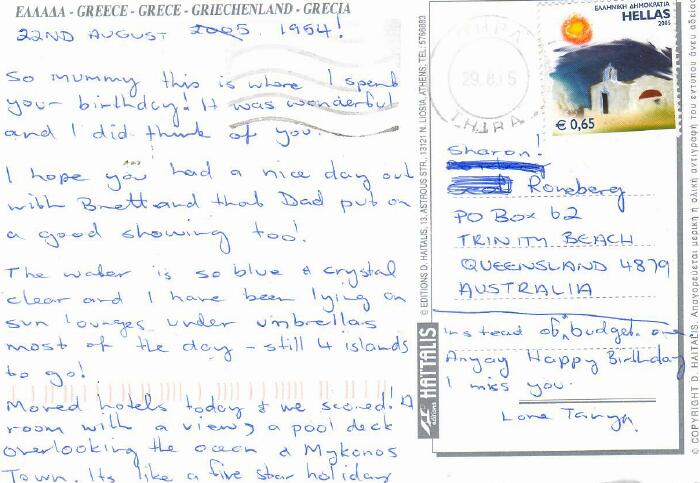 ΕΛΛΑΔΑ - GREECE - GRECE - GRIECHENLAND - GRECIA
22ND AUGUST 2005. 1954!
So Mummy this is where I spend
your birthday! It was wonderful
and I did think of you.
I hope you had a nice day out
with Brett and that Dad put on
a good showing too!
The water is so blue & crystal
clear and I have been lying on
sun lounges under umbrellas
most of the day - still 4 islands
to go!
Moved hotels today & we scored! A
room with a view, a pool deck
overlooking the ocean & Mykonos
Town. Its like a five star holiday
instead of budget one
Anyay Happy Birthday
I miss you.
Love Tanya.
Sharon!
Roneberg
PO Box 62
TRINITY BEACH
QUEENSLAND 4879
AUSTRALIA
ΕΛΛΗΝΙΚΗ ΔΗΜΟΚΡΑΤΙΑ
HELLAS
2005
€ 0,65
THIRA
29.8.05
THIRA
© EDITIONS D. HAITALIS, 13, ASTROUS STR., 13121 N. LIOSIA, ATHENS, TEL.: 5766883
HAITALIS
editions
© COPYRIGHT D. HAITALIS. Απαγορεύεται μερική ή ολική αντιγραφή του εντύπου άνευ αδείας